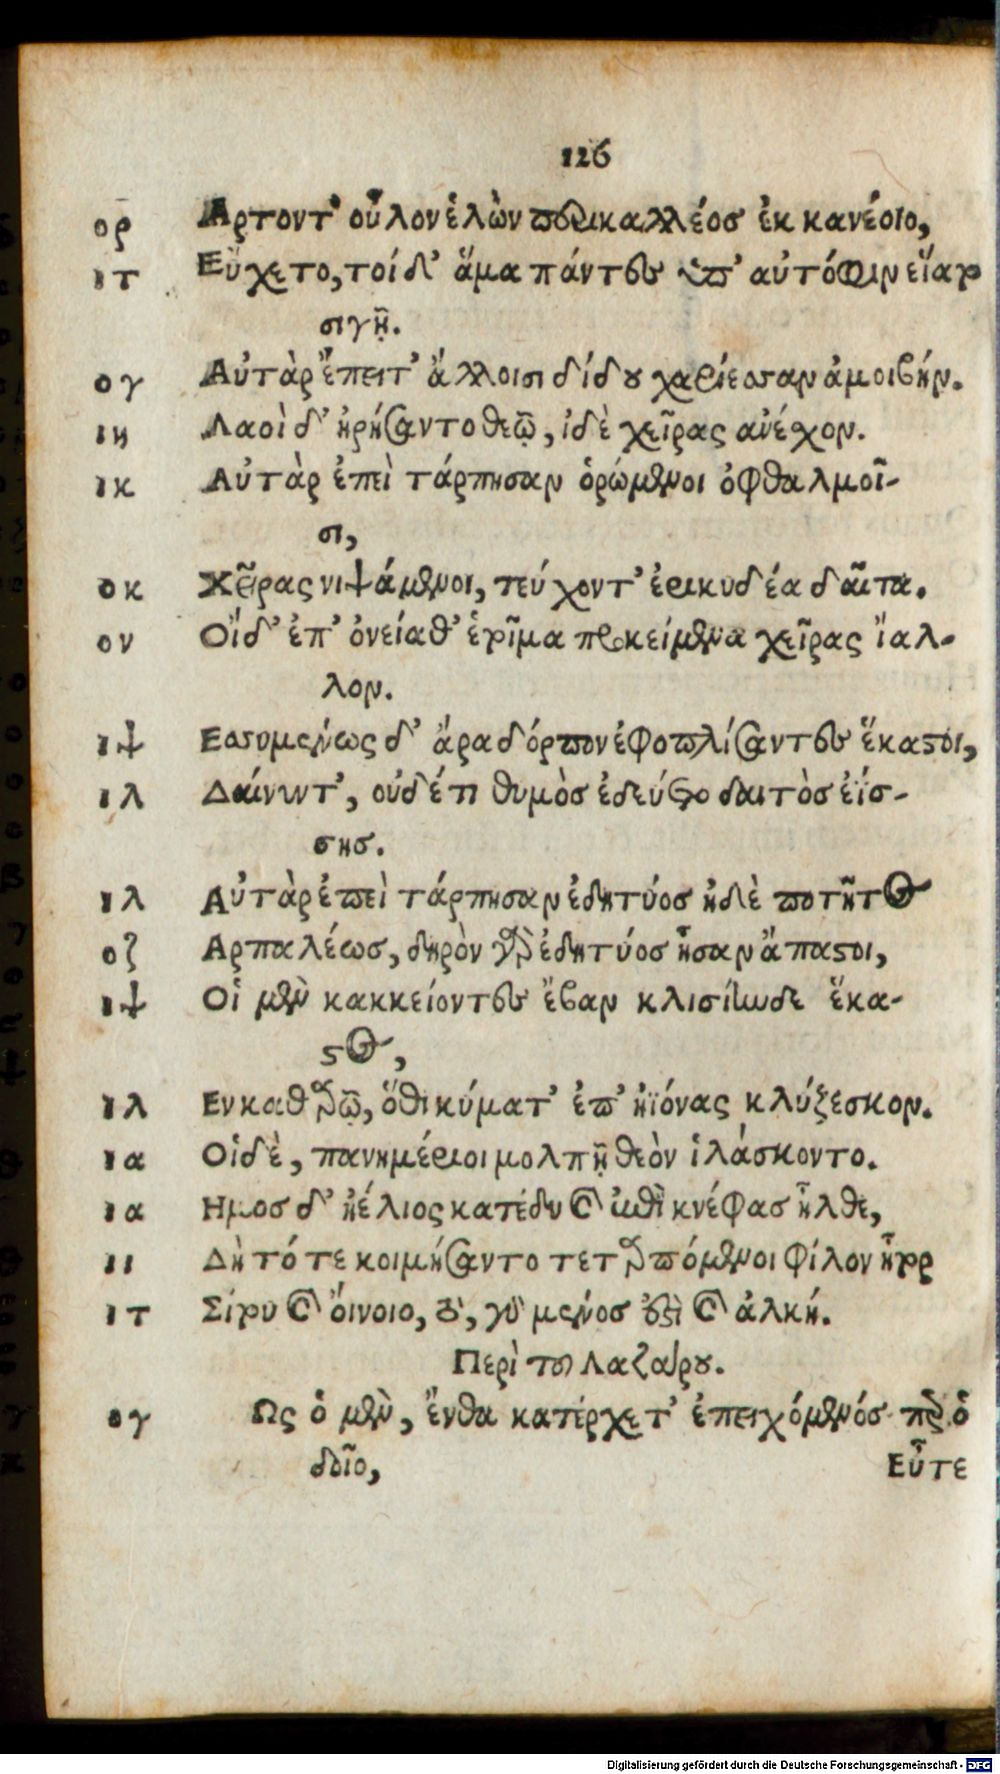 126
ορ Αρτοντ' οὖλον ἑλὼν περικαλλέοσ ἐκ κανέοιο,
ιτ Εὔχετο, τοὶ δ' ἅμα πάντες ὑπ' αὐτόφιν εἵαρ
σιγῇ.
ογ Αὐτὰρ ἔπειτ' ἄλλοισι δίδου χαρίεσσαν ἀμοιβήν.
ιη Λαοὶ δ' ἠρήσαντο θεῷ, ἰδὲ χεῖρας ἀνέχον.
ικ Αὐτὰρ ἐπεὶ τάρπησαν ὁρώμενοι ὀφθαλμοῖ-
σι,
οκ Χεῖρας νιψάμενοι, τεύχοντ' ἐρικυδέα δαῖτα.
ον Οἵδ' ἐπ' ὀνείαθ' ἑτοῖμα προκείμενα χεῖρας ἴαλ-
λον.
ιψ Εσσυμένως δ' ἄρα δόρπον ἐφοπλίσαντες ἕκαστοι,
ιλ Δαίνυντ', οὐδέ τι θυμὸσ ἐδεύετο δαιτὸσ ἐΐσ-
σησ.
ιλ Αὐτὰρ ἐπεὶ τάρπησαν ἐδητύοσ ἠδὲ ποτῆτος
οζ Αρπαλέωσ, δηρὸν γὰρ ἐδητύοσ ἦσαν ἄπαστοι,
ιψ Οἱ μὲν κακκείοντες ἔβαν κλισίηνδε ἕκα-
στος,
ιλ Εν καθαρῷ, ὅθι κύματ' ἐπ' ἠϊόνας κλύζεσκον.
ια Οἱ δὲ, πανημέριοι μολπῇ θεὸν ἱλάσκοντο.
ια Ημοσ δ' ἠέλιος κατέδυ καὶ ἐπὶ κνέφασ ἦλθε,
ιι Δὴ τότε κοιμήσαντο τεταρπόμενοι φίλον ἦτορ
ιτ Σίτου καὶ οἴνοιο, τοῦ, γὰρ μένοσ ἐστὶ καὶ ἀλκή.
Περὶ τοῦ Λαζάρου.
ογ Ως ὁ μὲν, ἔνθα κατέρχετ' ἐπειχόμενόσ περ ὁ
δοῖο,
Εὖτε
Digitalisierung gefördert durch die Deutsche Forschungsgemeinschaft - DFG